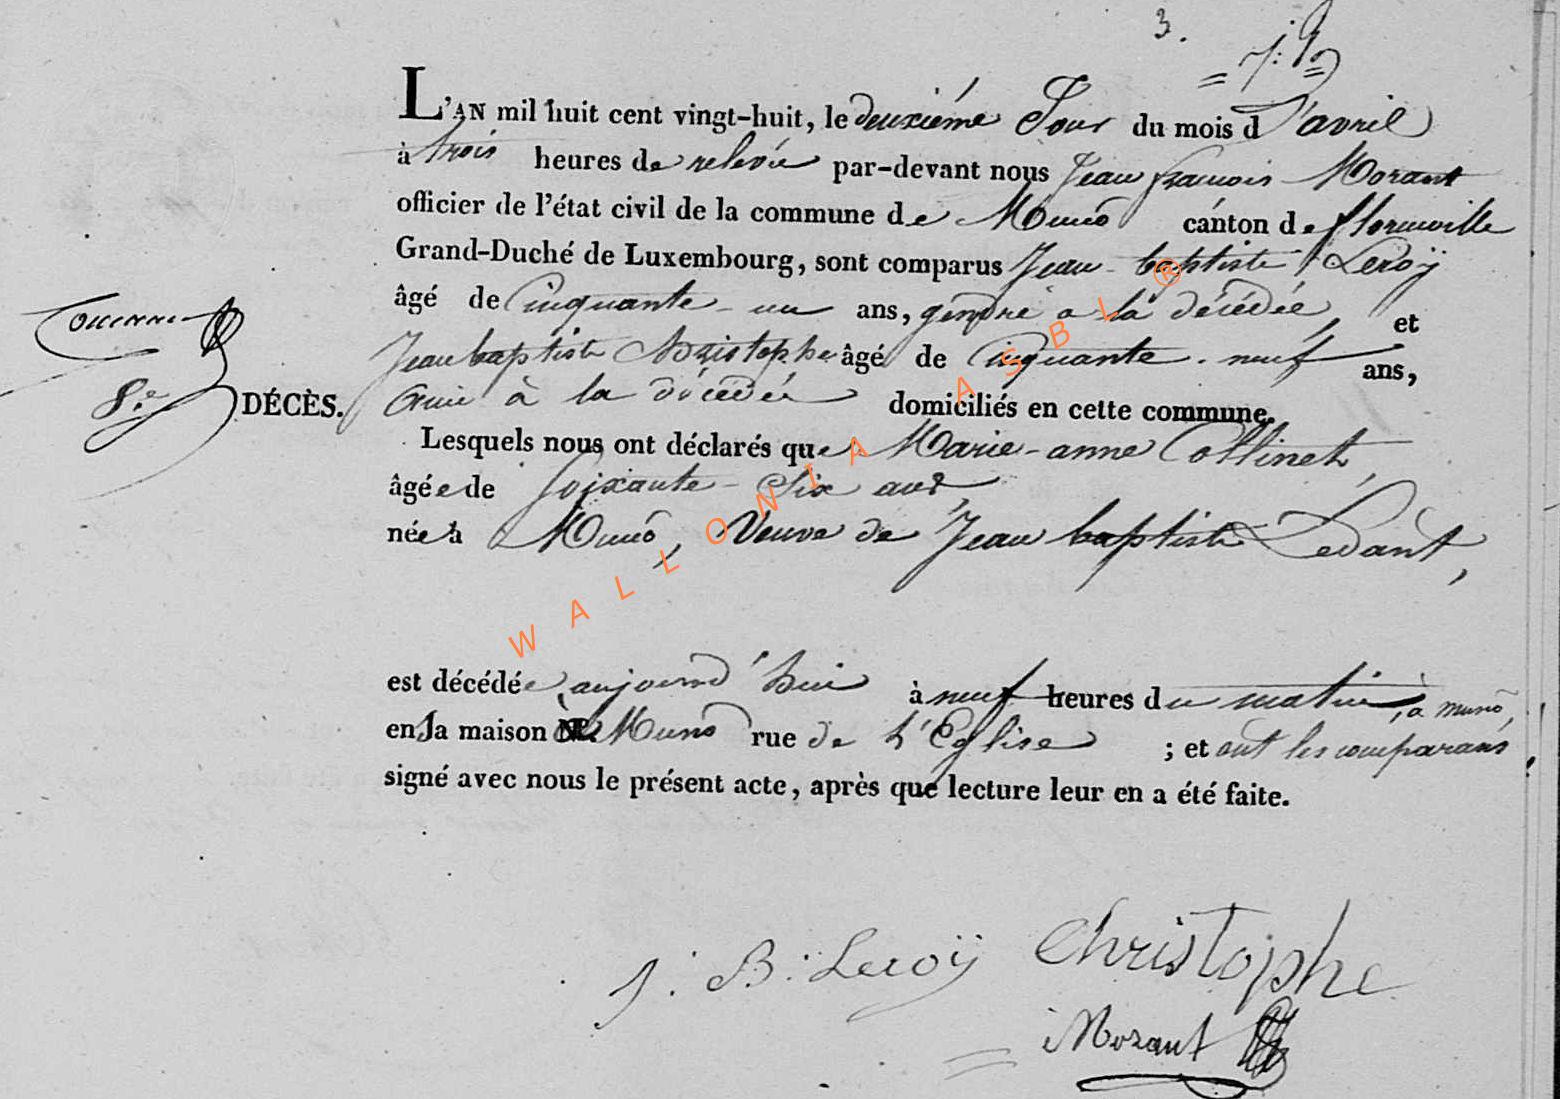 3.
L'AN mil huit cent vingt-huit, le deuxiéme Jour du mois d'avril
à trois heures de relevée par-devant nous Jean françois Morant
officier de l'état civil de la commune de Muno canton de florenville
Grand-Duché de Luxembourg, sont comparus Jean-baptiste Leroÿ
âgé de Cinquante-un ans, gendre a la décédée, et
Jean baptiste Christophe âgé de Cinquante-neuf ans,
amie à la décédée domiciliés en cette commune.
8.e DÉCÈS.
Lesquels nous ont déclarés que Marie-anne Collinet,
âgée de Soixante-Six ans,
née à Muno, Veuve de Jean baptiste Ledant,
est décédée aujourd'hui à neuf heures du matin, a muno,
en sa maison à Muno rue de L'Eglise ; et ont les comparans
signé avec nous le présent acte, après que lecture leur en a été faite.
J. B. Leroÿ Christophe
Morant
WALLONIA ASBL ®